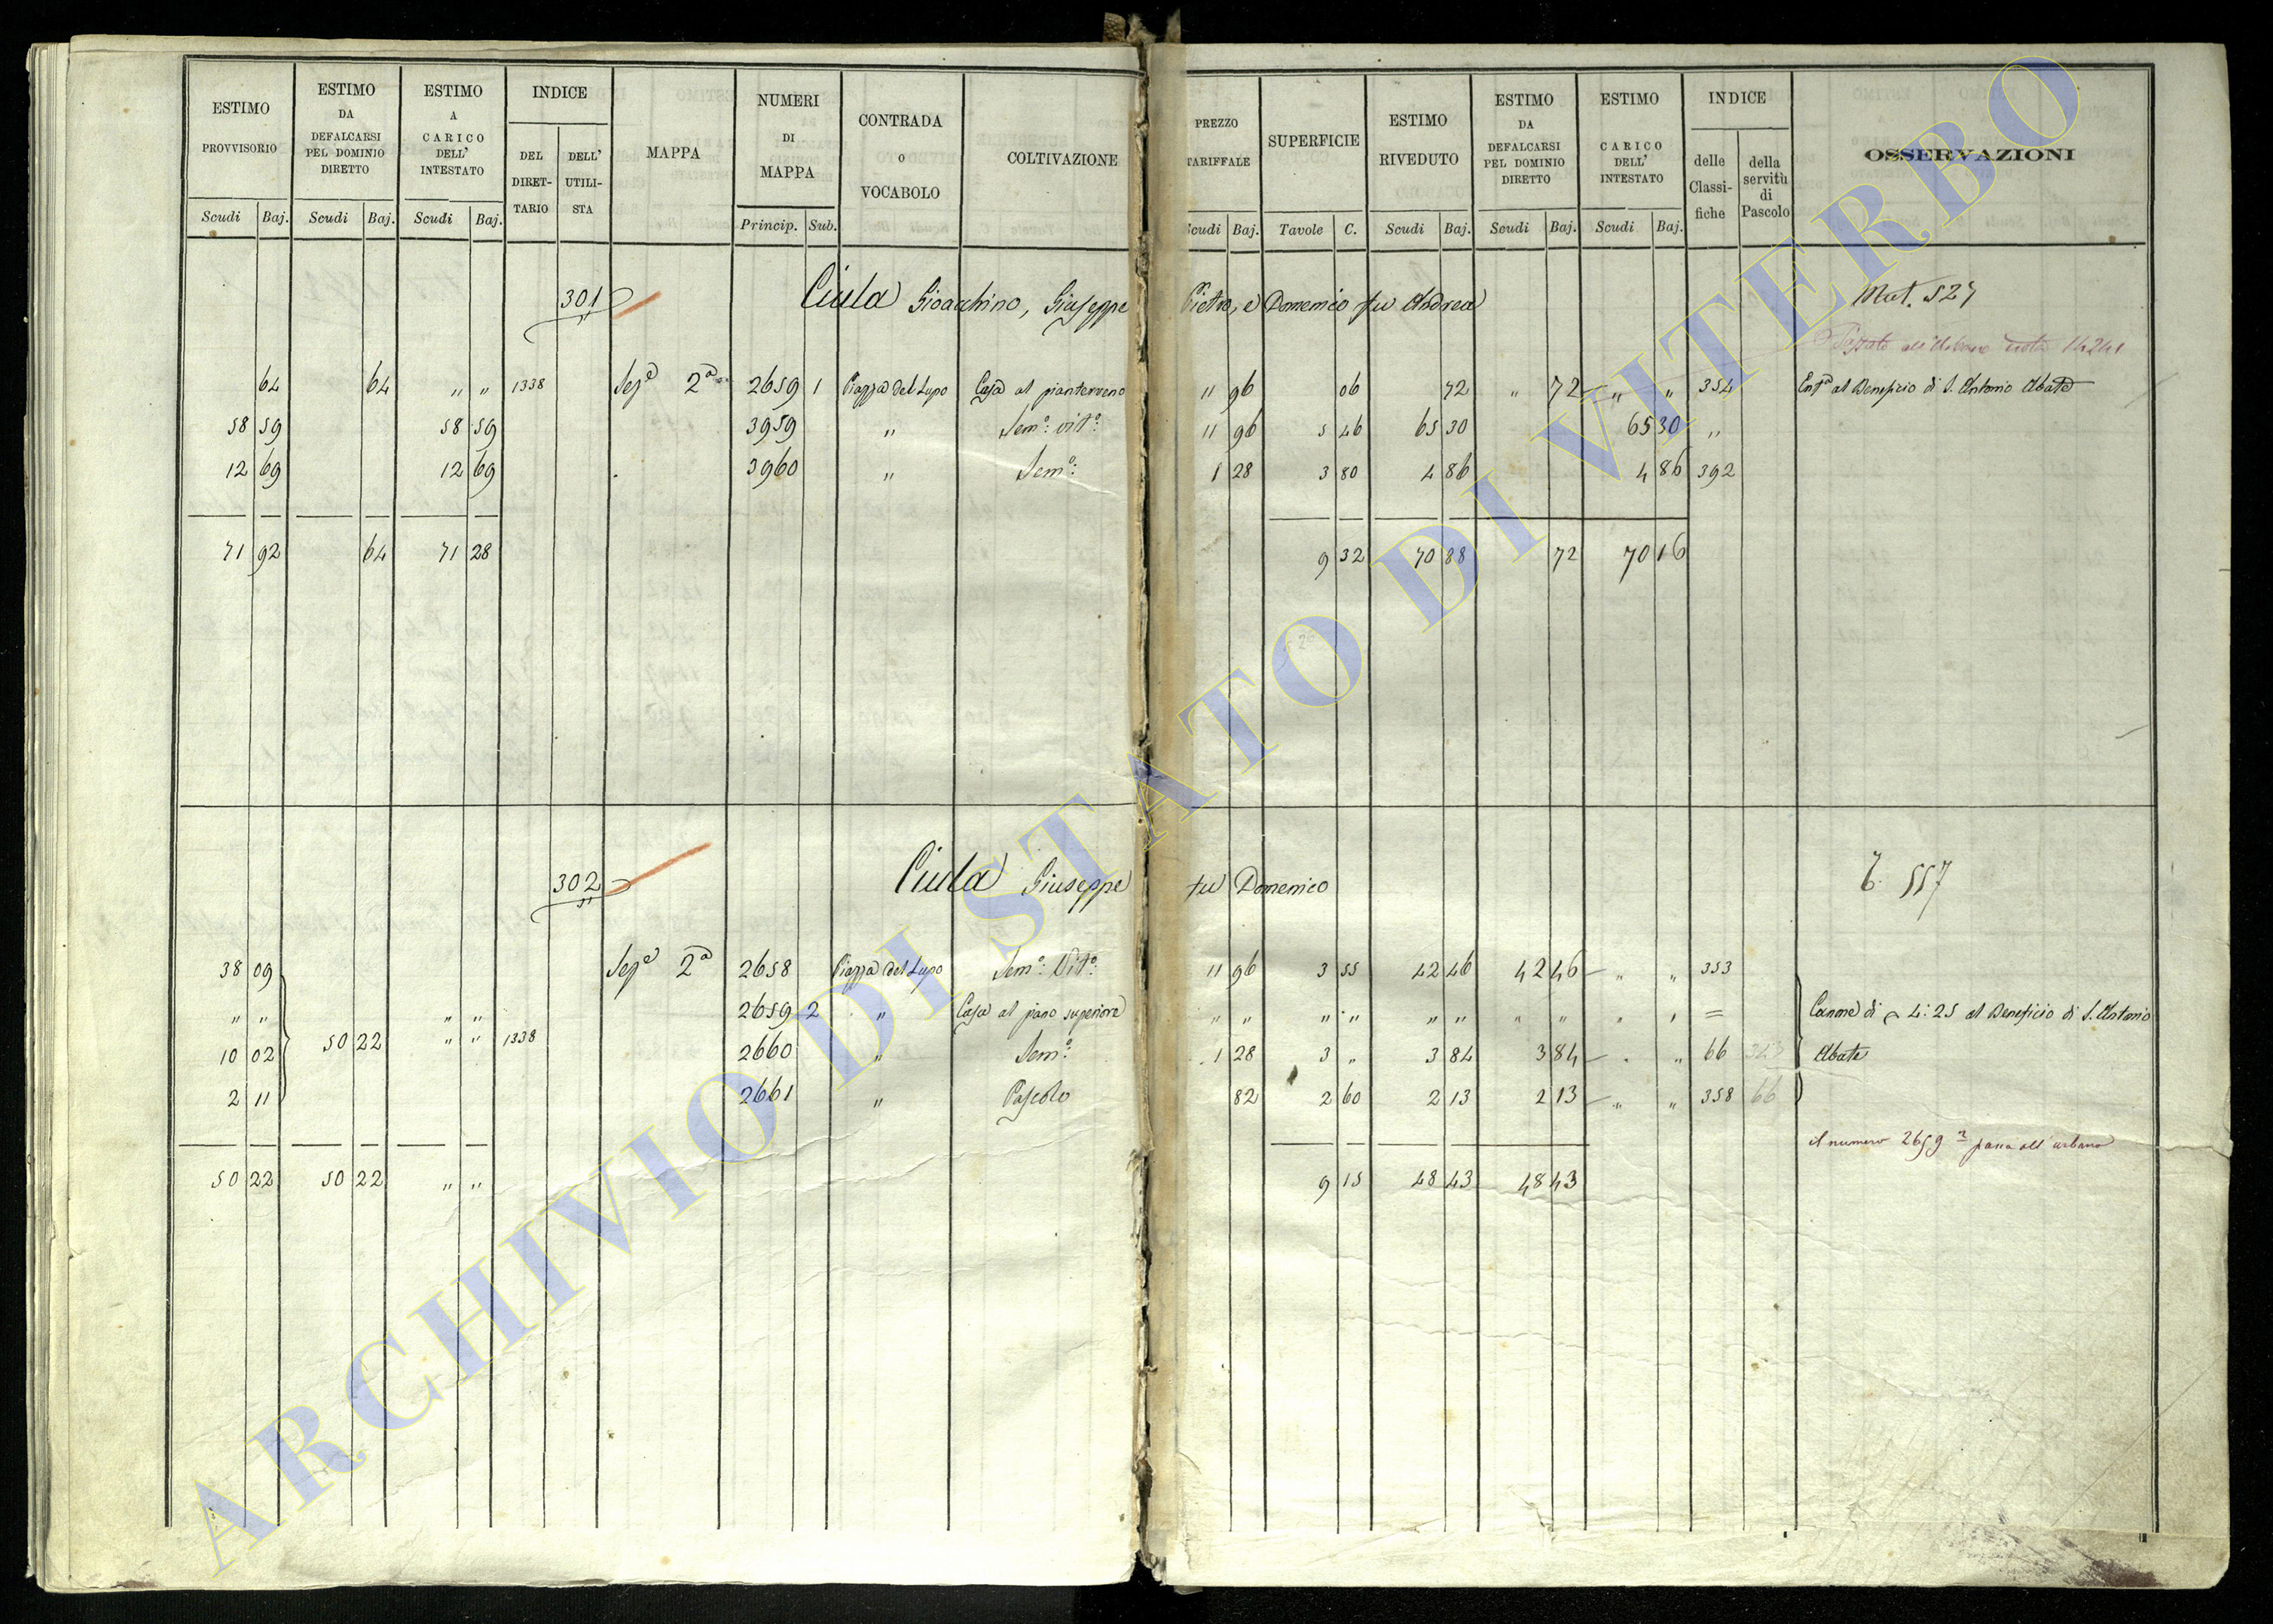 ESTIMO PROVVISORIO | ESTIMO DA DEFALCARSI PEL DOMINIO DIRETTO | ESTIMO A CARICO DELL' INTESTATO | INDICE DEL DIRET-TARIO | DELL' UTILI-STA | MAPPA | NUMERI DI MAPPA | CONTRADA O VOCABOLO | COLTIVAZIONE | PREZZO TARIFFALE | SUPERFICIE | ESTIMO RIVEDUTO | ESTIMO DA DEFALCARSI PEL DOMINIO DIRETTO | ESTIMO CARICO DELL' INTESTATO | INDICE delle Classi-fiche | della servitù di Pascolo | OSSERVAZIONI
Scudi Baj. Scudi Baj. Scudi Baj. Princip. Sub. Scudi Baj. Tavole C. Scudi Baj. Scudi Baj. Scudi Baj.
301 Ciula Gioacchino, Giuseppe Pietro, e Domenico fu Andrea Mat. 527
64 64 " " 1338 Sezᵉ 2ᵃ 2659 1 Piazza del Lupo Casa al pianterreno 11 96 06 72 " 72 " " 354 Entᵃ al Beneficio di S. Antonio Abate
58 59 58 59 3959 " Semᵒ: vitᵒ: 11 96 5 46 65 30 65 30 "
12 69 12 69 3960 " Semᵒ: 1 28 3 80 4 86 4 86 392
71 92 64 71 28 9 32 70 88 72 70 16
302 Ciula Giuseppe fu Domenico 557
38 09 Sezᵉ 2ᵃ 2658 Piazza del Lupo Semᵒ: Vitᵒ: 11 96 3 55 42 46 42 46 " " 353
" " " " 2659 2 " Casa al piano superiore " " " " " " " " " " = Canone di 4:25 al Beneficio di S. Antonio
10 02 50 22 " " 1338 2660 " Semᵒ: 1 28 3 " 3 84 3 84 " " 66 Abate
2 11 2661 " Pascolo 82 2 60 2 13 2 13 " " 358 66
il numero 2659 2 passa all'urbano
50 22 50 22 " " 9 15 48 43 48 43
ARCHIVIO DI STATO DI VITERBO